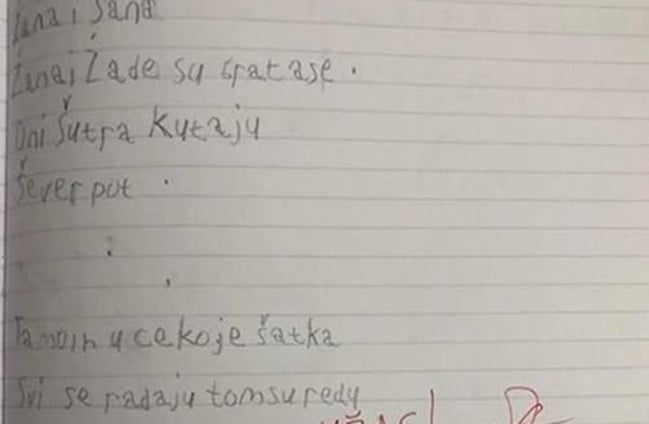 Žana i Sana
Žana i Žade su cpatase.
Oni Šutra Kutaju
Šever put.
Tamo ih u cekoje šatka
Svi se radaju tomsuredu